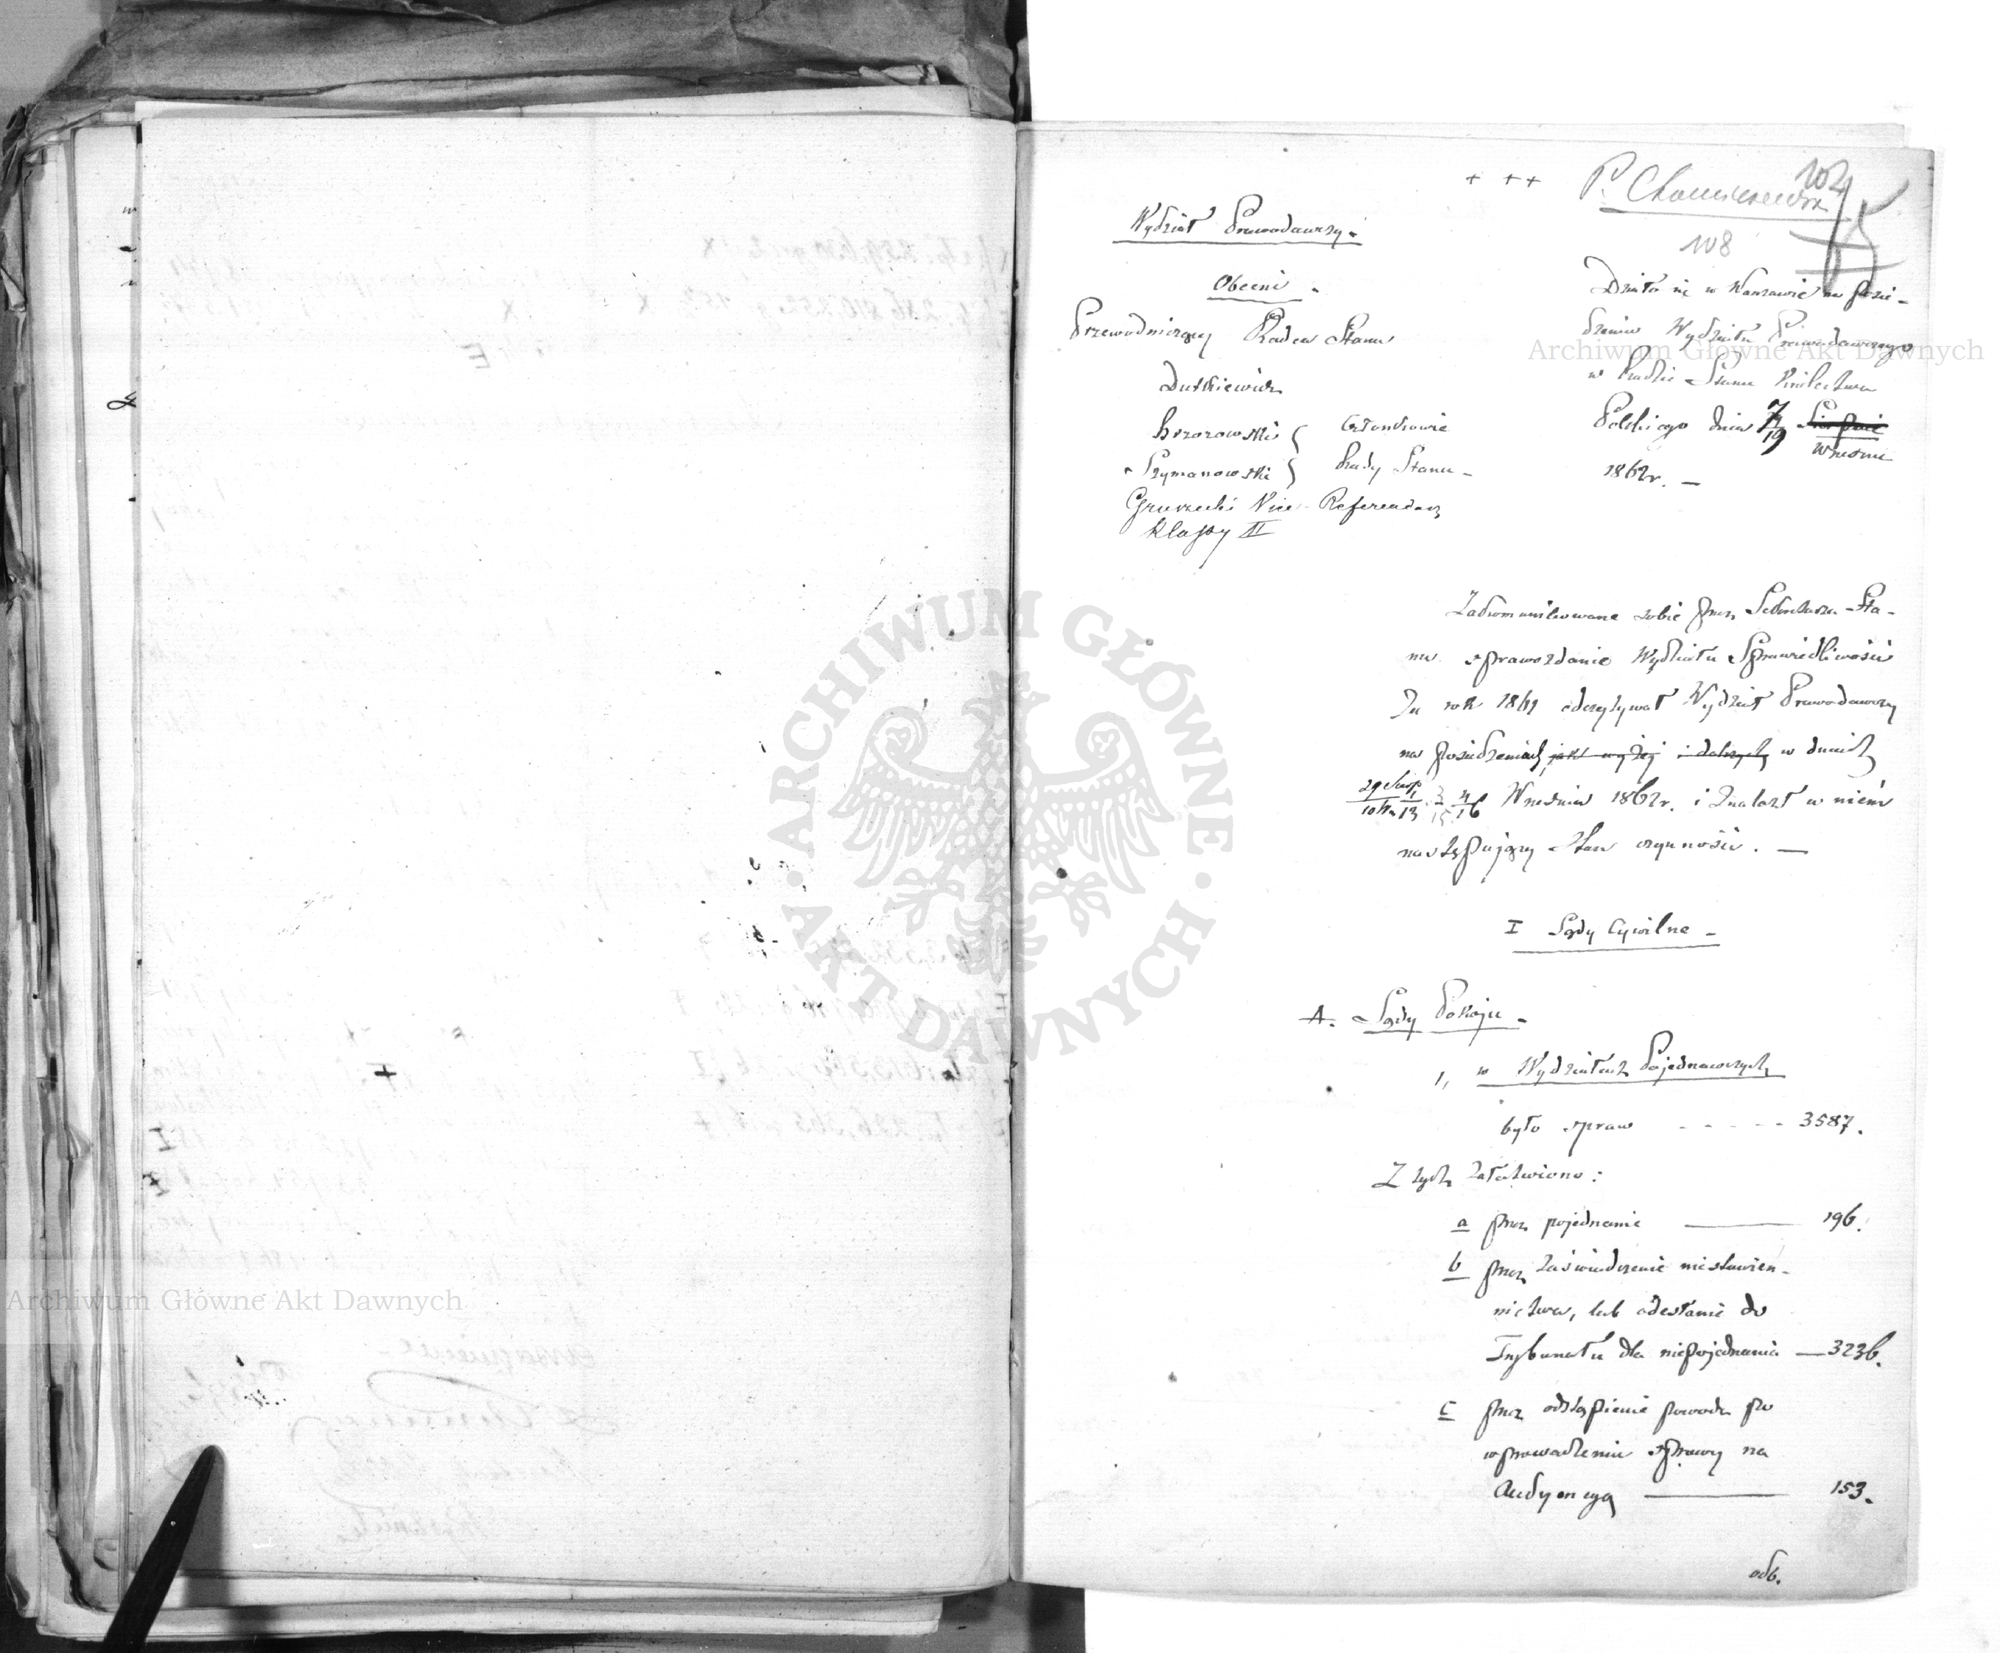 + ++
104
108
Wydział Prawodawczy.
Obecni
Przewodniczący Radca Stanu
Dutkiewicz
Brzozowski } Członkowie
Szymanowski } Rady Stanu
Gruszecki Vice-Referendarz
klassy II
Działo się w Warszawie na posie-
dzeniu Wydziału Prawodawczego
w Radzie Stanu Królestwa
Polskiego dnia 7/19 Sierpnia
Września
1862r. —
Zakomunikowane sobie przez Sekretarza Sta-
nu sprawozdanie Wydziału Sprawiedliwości
Za rok 1861 odczytywał Wydział Prawodawczy
na posiedzeniach jak wyżej i dalszych w dniach
29 Sierp/10 Wrz 1/13 3/15 4/16 Września 1862r. i znalazł w niem
następujący stan czynności. —
I Sądy Cywilne -
A. Sądy Pokoju -
1, w Wydziałach Pojednawczych
było spraw - - - - - 3587.
Z tych załatwiono:
a przez pojednanie — 196.
b przez zaświadczenie niestawien-
nictwa, lub odesłanie do
Trybunału dla niepojednania — 3236.
c przez odstąpienie powoda po
wprowadzeniu sprawy na
Audyencyą — 153.
odb.
Archiwum Główne Akt Dawnych
Archiwum Główne Akt Dawnych
ARCHIWUM GŁÓWNE · AKT DAWNYCH ·